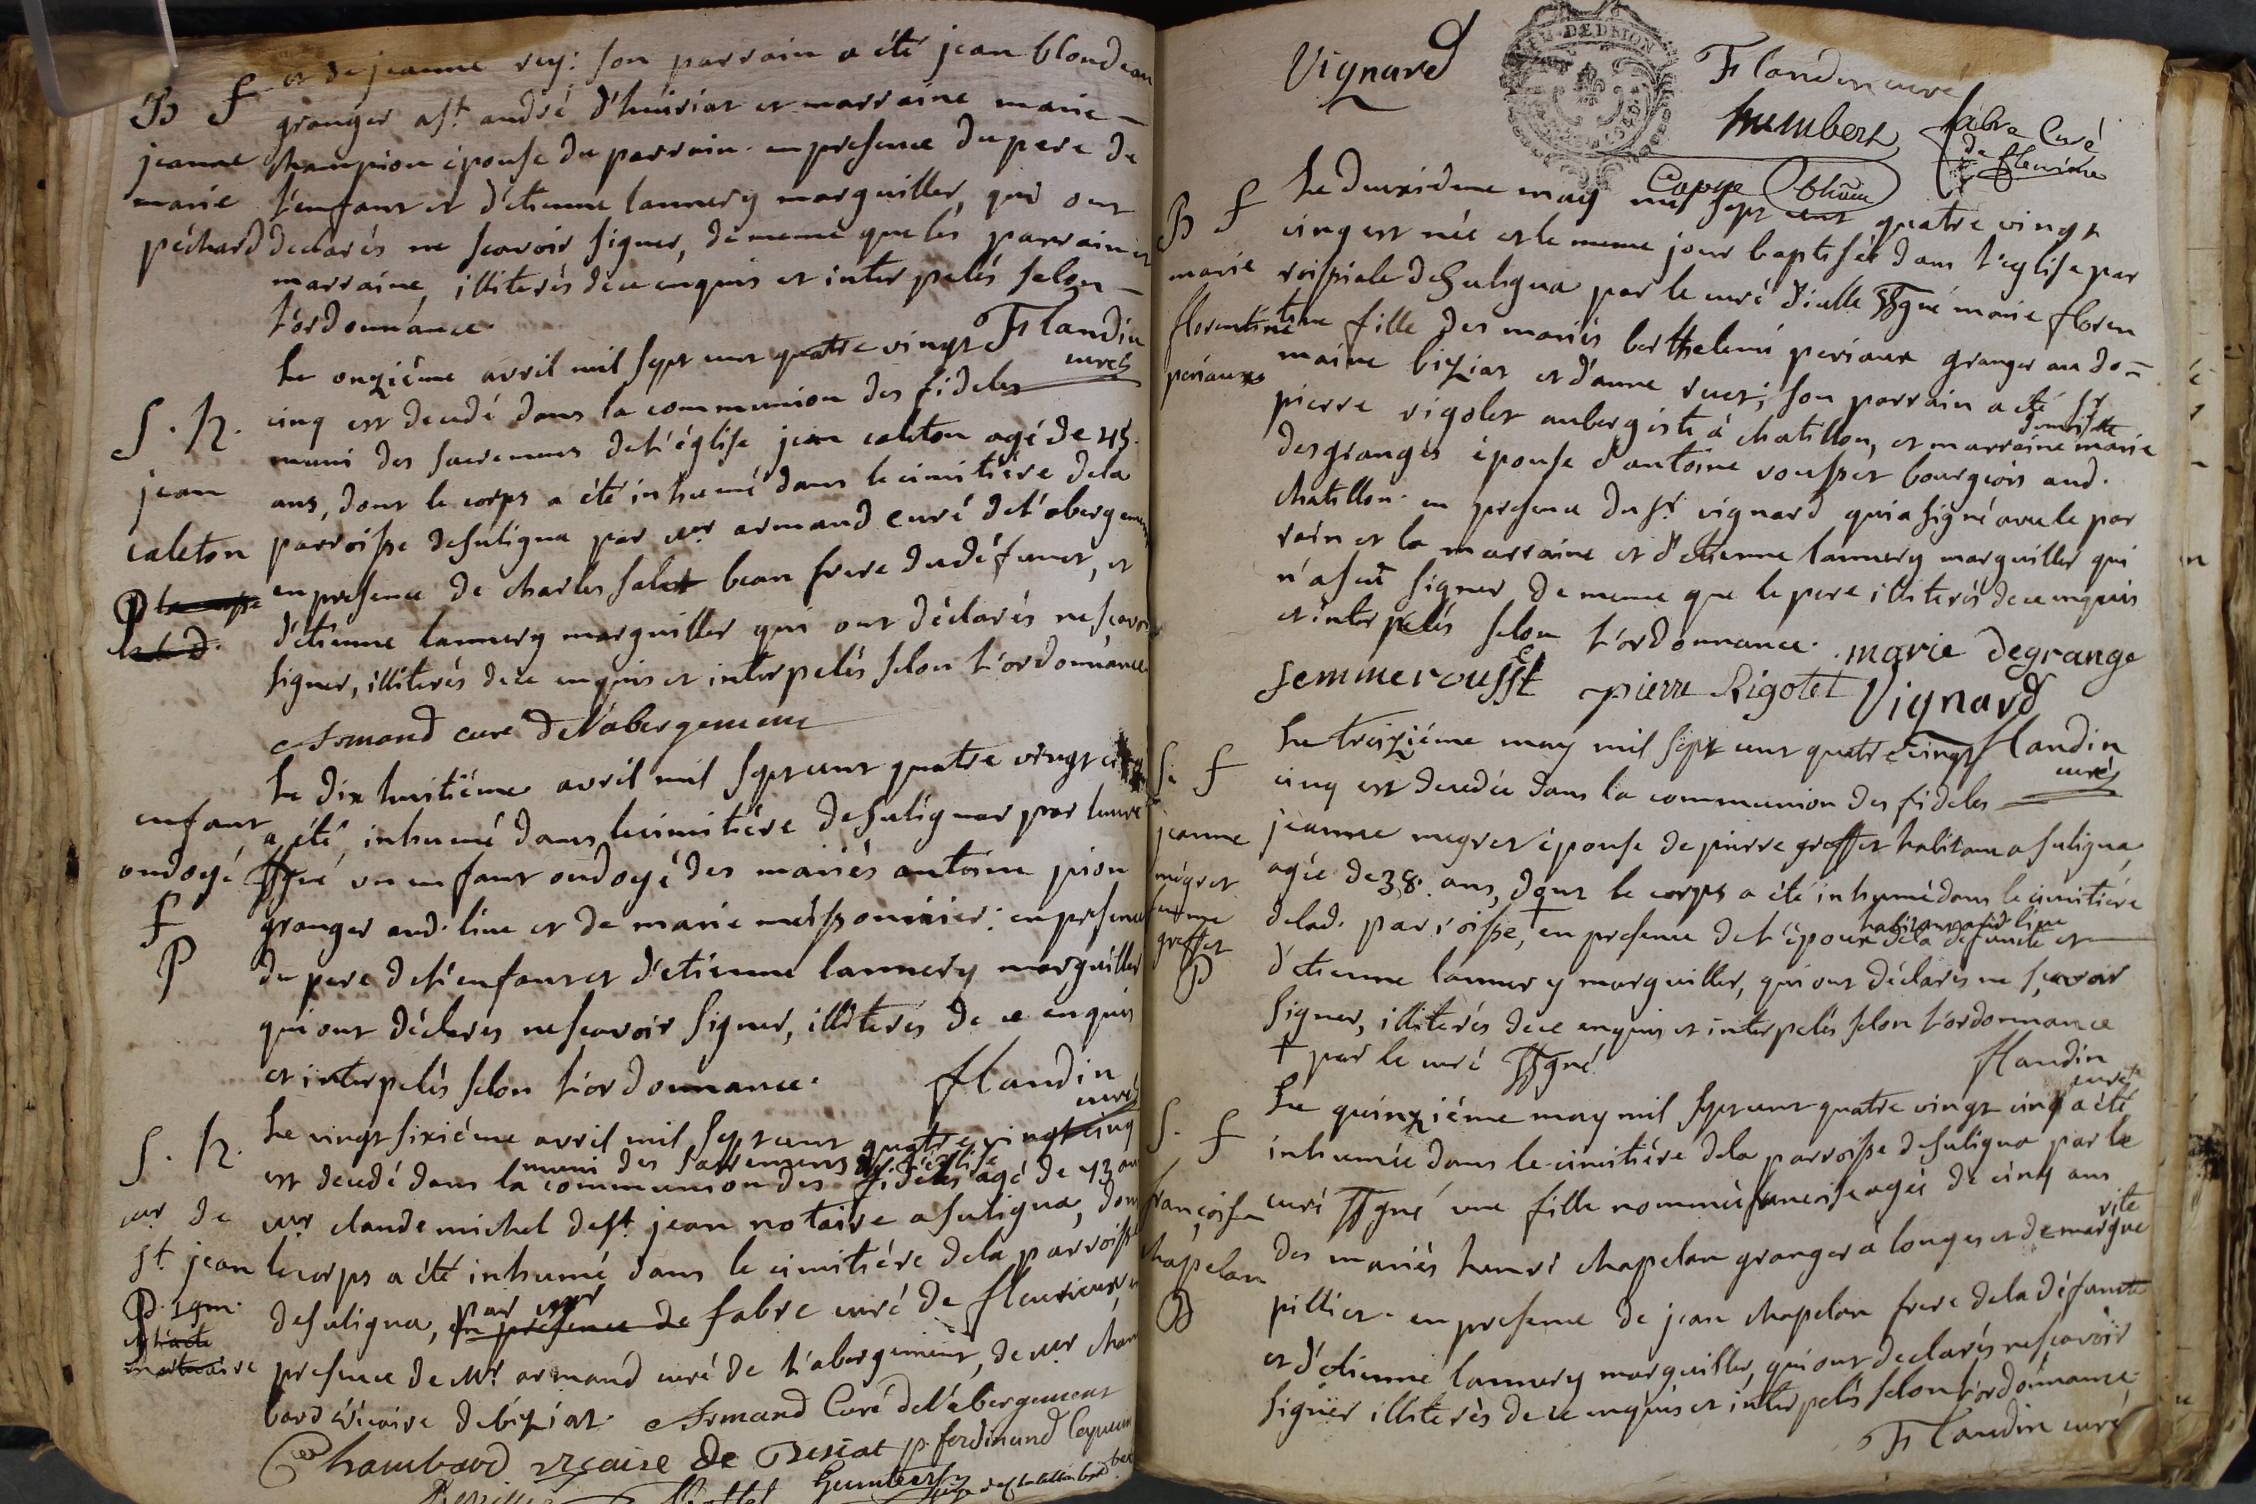 et de jeanne rey: son parrain a été jean blondeau
B f
granger a st. andré d'huiriat et marraine marie
jeanne
marie
péchard
champion épouse du parrain. en presence du pere de
l'enfant et d'etienne lannery marguiller, qui ont
declarés ne scavoir signer, de meme que les parrain et
marraine, illiterés de ce enquis et interpelés selon
l'ordonnance.
Flandin curé
Le onzième avril mil sept cent quatre vingt
S. h.
cinq est decedé dans la communion des fideles
muni des sacremens de l'église jean caleton agé de 45.
jean
caleton
ans, dont le corps a été inhumé dans le cimitière de la
parroisse de suligna par mr armand curé de l'abergement
en presence de charles salet beau frere du défunct, et
d'étienne lannery marguiller qui ont déclarés ne scavoir
signer, illiterés de ce enquis et interpelés selon l'ordonnance
Armand curé de l'abergement
Le dix huitième avril mil sept cent quatre vingt cinq
enfant
ondoyé
f
P
a été inhumé dans le cimitière de suligna par le curé
ssgné un enfant ondoyé des mariés antoine pion
granger aud. lieu et de marie meissonnier: en presence
du pere de l'enfant et d'etienne lannery marguiller
qui ont déclarés ne scavoir signer, illiterés de ce enquis
et interpelés selon l'ordonnance.
flandin curé
Le vingt sixième avril mil sept cent quatre vingt cinq
S. h.
muni des sacremens de l'église
est decedé dans la communion des fideles agé de 43 ans
mr de
st. jean
mr claude michel de st. jean notaire a suligna, dont
le corps a été inhumé dans le cimitière de la parroisse
par mr
de suligna, en presence de fabre curé de fleurieux en
P. 1gm.
extraite
mortuaire
presence de Mr. armand curé de l'abergement, de mr cham
bard vicaire de biziat.
Armand Curé de l'abergement
Chambard vicaire de Besiat p. ferdinand
Vignard
Flandin curé
humbert
fabre Curé
de fleurieu
Le deuxieme may mil sept cent quatre vingt
B f
cinq est née et le meme jour baptisée dans l'eglise par
marie
florentine
periaux
roissiale de Suligna par le curé d'icelle ssgné marie floren
tine fille des mariés berthelemi periaux granger au do
maine biziat et d'anne ruet; son parrain a été sr.
pierre rigolet aubergiste à chatillon, et marraine demoiselle marie
desgranges épouse d'antoine rousset bourgeois aud.
chatillon. en presence du sr. vignard qui a signé avec le par
rain et la marraine et d'etienne lannery marguiller qui
n'a scu signer de meme que le pere illiterés de ce enquis
et interpelés selon l'ordonnance.
marie degrange
femme rousset pierre Rigolet Vignard
flandin curé
Le treizième may mil sept cent quatre vingt
S. f
cinq est decedée dans la communion des fideles
jeanne
megret
femme
greffet
P
jeanne megret épouse de pierre greffet habitant a suligna
agée de 38. ans, dont le corps a été inhumé dans le cimitière
habitant aud. lieu
de lad. parroisse, † en presence de l'époux de la défuncte et
d'etienne lannery marguiller, qui ont déclarés ne scavoir
signer, illiterés de ce enquis et interpelés selon l'ordonnance
† par le curé ssgné
flandin curé
Le quinzième may mil sept cent quatre vingt cinq a été
S. f
inhumée dans le cimitière de la parroisse de suligna par le
françoise
chapelan
P
curé ssgné une fille nommée francoise agée de cinq ans
des mariés henri chapelan granger a longes et de margue
rite
pillier. en presence de jean chapelan frere de la défuncte
et d'etienne lannery marguiller, qui ont declarés ne scavoir
signer illiterés de ce enquis et interpelés selon l'ordonnance.
Flandin curé